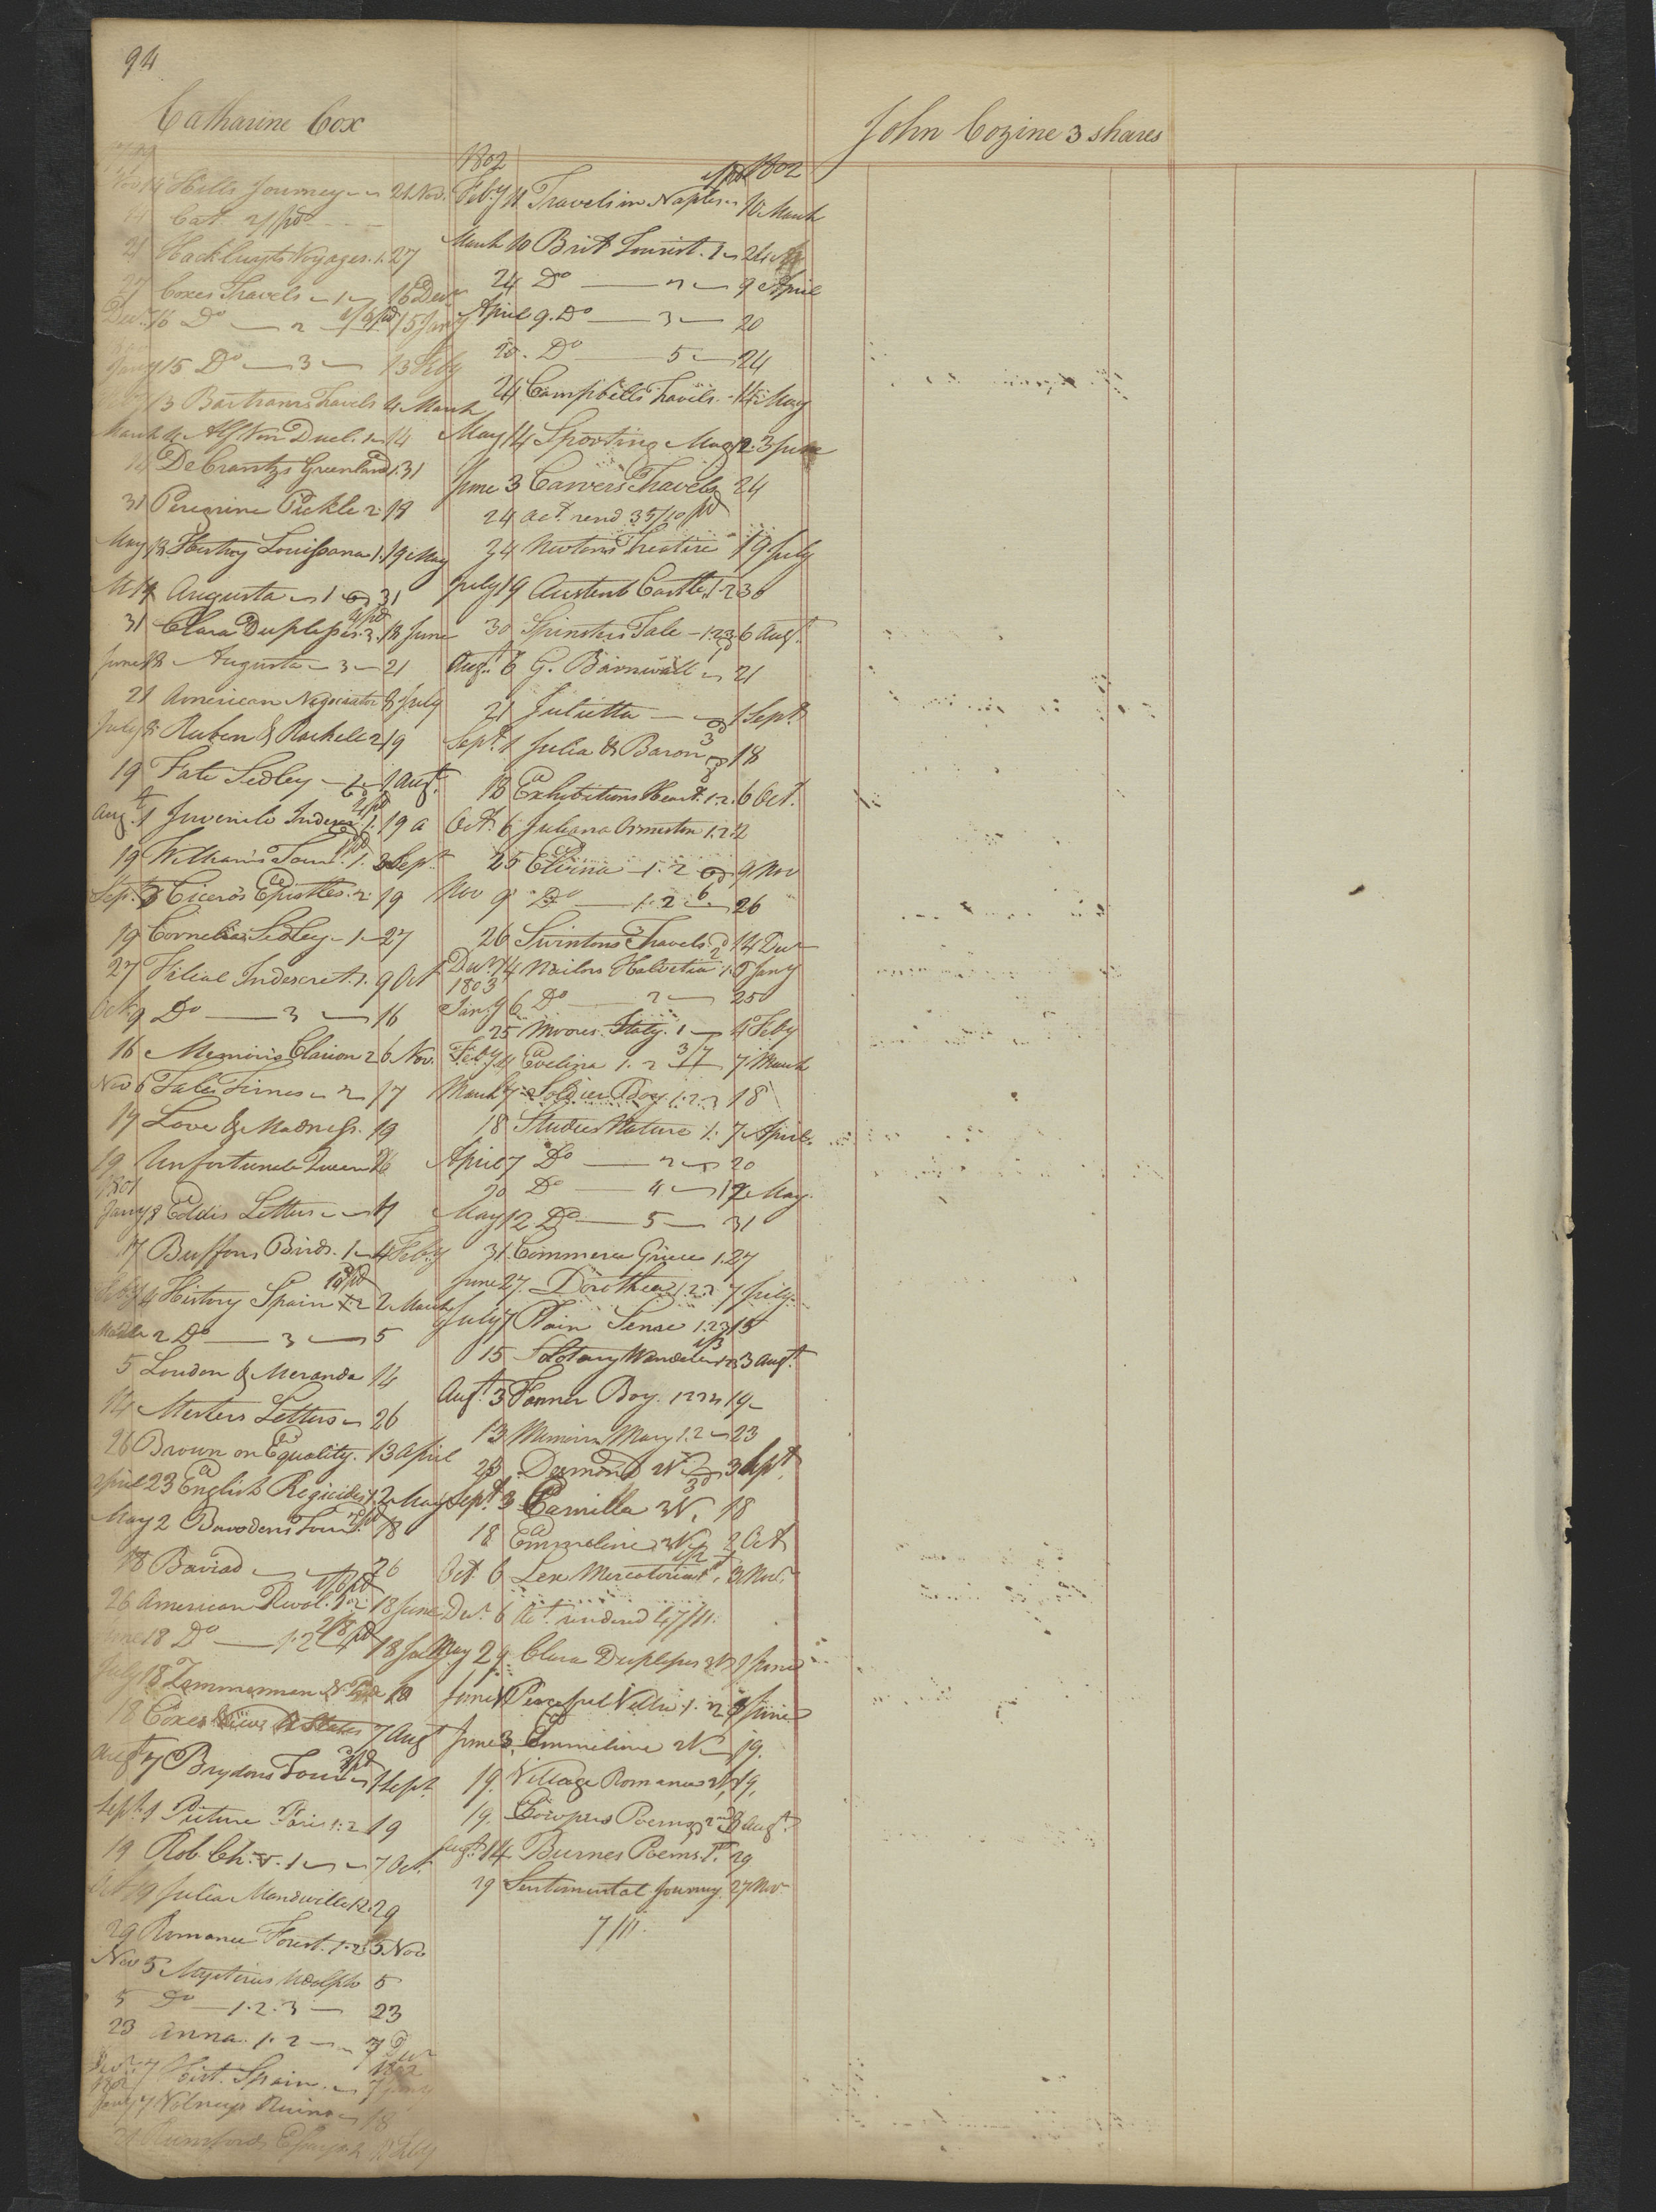 94
Catharine Cox
Nov 14 Hills Journey 21 Nov.
Cat 2/ pd
21 Hackluyts Voyages. 1. 27
27 Coxes Travels 1 16 Decr
Decr. 16 Do 2 15 Jany
Jany 15 Do 3 13 Feby
13 Bartrams Travels 4 March
March 4 Alf Von Duel. 14
14 DeCrantzs Greenland 1. 31
31 Peregrine Pickle 2 18
May 18 History Louissana 1. 19 May
19 Augusta 1 31
31 Clara Duplessis. 3. 18 June
June 18 Augusta 3 21
21 American Negociator 8 July
July 8 Ruben & Rachell 2 19
19 Fate Sedley 1 Augt.
Augt. 1 Juvenile Indescr 1. 19 a
19 Wilkams Tour. 1. 3 Sept
Sept. 3 Ciceros Epistles. 2. 19
19 Cornelias Sedley 1 27
27 Filial Indescret. 1. 9 Oct
Oct. 9 Do 3 16
16 Memoirs Clarion 2 6 Nov.
Nov 6 Tales Times 2 17
17 Love & Madness. 19
19 Unfortunate Queen 26
1801
Jany 8 Eddis Letters 17
17 Buffons Birds. 1 4 Feby
Feby 4 History Spain 1.2 2 March
March 2 Do 3 5
5 Loudon & Meranda 14
14 Merters Letters 26
26 Brown on Equality. 13 April
April 23 English Regicides 1. 2 May
May 2 Bawodens Tour. 18
18 Baviad 26
26 American Revol. 1.2 18 June
June 18 Do 1.2 18 July
July 18 Zimmerman
18 Coxes View U States 7 Augt
Augt 7 Brydons Tour 1 Sept.
Sept. 1 Picture Paris 1.2 19
19 Rob. Ch. 5. 1 7 Oct.
Oct 19 Julia Mandville 1.2. 29
29 Romance Forest. 1.2 5 Nov
Nov 5 Mysteries Udolpho 5
5 Do 1.2.3 23
23 Anna. 1. 2 7 Decr
Decr. 7 Hist. Spain
1802
Jany 7 Volneys Ruins 18
Rumfords Essays. 2
1802
Feby 11 Travels in Naples 10 March
March 10 Brit Tourist. 1 24
24 Do 2 9 April
April 9. Do 3 20
20. Do 5 24
24 Campbells Travels. 14 May
May 14 Sporting Mag 12. 3 June
June 3 Carvers Travels 24
24 act. rend 35/10 pd
24 Newtons Treatise 19 July
July 19 Austenb Castle 1.2 30
30 Spinsters Tale 1.2.3 6 Augt.
Augt. 6 G. Barnwall 21
21 Julietta 1 Sept.
Sept. 1 Julia & Baron 18
18 Exhibitions Heart. 1.2. 6 Oct.
Oct. 6 Juliana Ormeston 1.2
25 Elvina 1. 2 9 Nov
Nov 9 Do 1. 2 26
26 Swintons Travels 14 Decr
Decr. 14 Mailns Helvetia 1. 6 Jany
1803
Jany 6 Do 2 25
25 Moores Italy. 1 4 Feby
Feby. 4 Evelina 1. 2 7 March
March 7 Soldier Boy 1.2.3 18
18 Studies Nature 1. 7 April.
April 7 Do 2 20
20 Do 4 12 May.
May 12 Do 5 31
31 Commerce Griece 1. 27
June 27. Dorothea 1.2.3 7 July
July 7 Plain Sense 1.2.3 15
15 Solotary Wanderer 1.2.3 3 Augt.
Augt. 3 Farmer Boy. 1.2.3.4. 19
13 Memoirs Mary 1.2 23
23 Desmond 2V. 3 Sept.
Sept. 3 Camilla 3V. 18
18 Emmeline 3V 2 Oct
Oct. 6 Lex Mercatoria 3 Nov.
Decr. 6 Act. rendered 47/11.
May 29. Clara Duplessis 2V 1 June
June 1 Peaceful Villa. 1. 2. 3 June
June 3. Emmeline 2V 19.
19. Village Romance 2V 19.
19. Cowpers Poems 3 Augt.
Augt. 14 Burnes Poems. 1. 29
29 Sentimental Journey. 27 Nov.
7/11.
John Cozine 3 shares